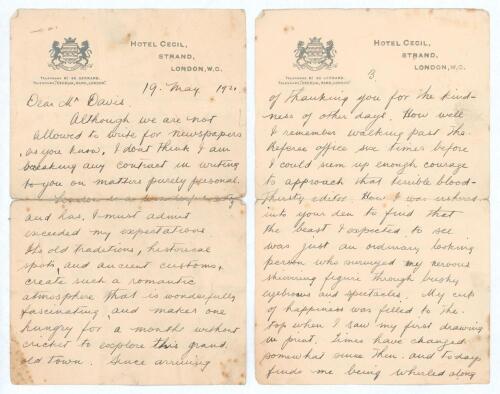 HOTEL CECIL,
STRAND,
LONDON, W.C.
19. May 192
Dear Mr Davis.
Although we are not
allowed to write for newspapers
as you know, I dont think I am
breaking any contract in writing
to you on matters purely personal.
London is a
and has, I must admit
exceeded my expectations
Its old traditions, historical
spots, and ancient customs,
create such a romantic
atmosphere that is wonderfully
fascinating, and makes one
hungry for a month without
cricket to explore this grand
old town. Since arriving
HOTEL CECIL,
STRAND,
LONDON, W.C.
3
of thanking you for the kind-
ness of other days. How well
I remember walking past the
Referee office six times before
I could sum up enough courage
to approach that terrible blood-
thirsty editor. How I was ushered
into your den to find that
the beast I expected to see
was just an ordinary looking
person who surveyed my nervous
shivering figure through bushy
eyebrows and spectacles. My cup
of happiness was filled to the
top when I saw my first drawing
in print. Times have changed
somewhat since then. and today
finds me being whirled along